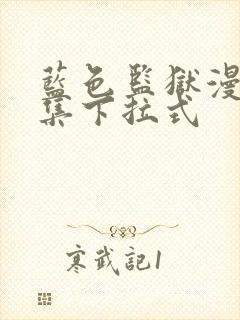 藍色監獄漫
集下拉式
寒武記1